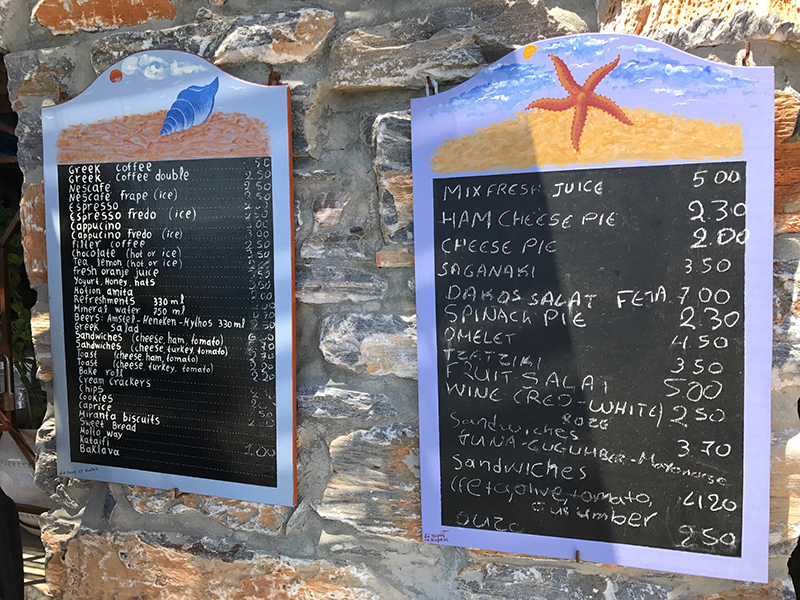 Greek coffee
Greek coffee double 2.50
Nescafe 2.50
Nescafe frape (ice)
Espresso
Espresso fredo (ice)
Cappucino
Cappucino fredo (ice)
filter coffee
Chocolate (hot or ice)
Tea lemon (hot or ice)
fresh orange juice
Yogurt, Honey, nats
Motion anita
Refreshments 330 ml
Mineral water 750 ml
Beers: Amstel-Heneken-Mythos 330ml
Greek Salad
Sandwiches (cheese, ham, tomato)
Sandwiches (cheese, turkey, tomato)
Toast (cheese, ham, tomato)
Toast (cheese, turkey, tomato)
Bake roll
Cream crackers
Chips
Cookies
Caprice
Miranta biscuits
Sweet Bread
Molto way
Kataifi
Baklava
MIX FRESH JUICE 5.00
HAM CHEESE PIE 2.30
CHEESE PIE 2.00
SAGANAKI 3.50
DAKOS SALAT FETA 7.00
SPINACH PIE 2.30
OMELET 4.50
TZETZIKI 3.50
FRUIT SALAT 5.00
WINE (RED-WHITE) 2.50
ROZE
Sandwiches
TUNA-CUCUMBER-Mayonerse 3.70
Sandwiches
(feta,olive,tomato, 4.20
cusumber
ouzo 2.50